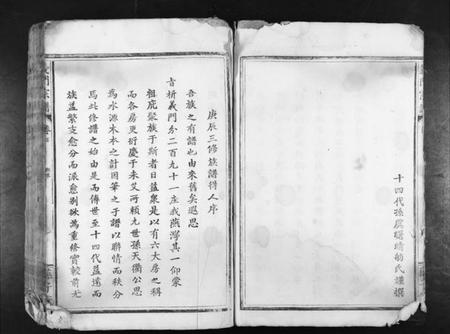 庚辰三修族譜得人序
吾族之有譜也由來舊矣遐思
昔析義門分二百九十一庄或燕灣其一仰蒙
祖庇髮族于斯者日益衆是以有六大房之稱
而各房更衍慶于未艾所賴九世孫天衢公思
為水源木本之計因筆之于譜以聯情而秩分
焉此修譜之始由是而傳世至十四代益遠而
族益繁支愈分而派愈別欲為重修實較前尤
十四代孫 氏謹撰